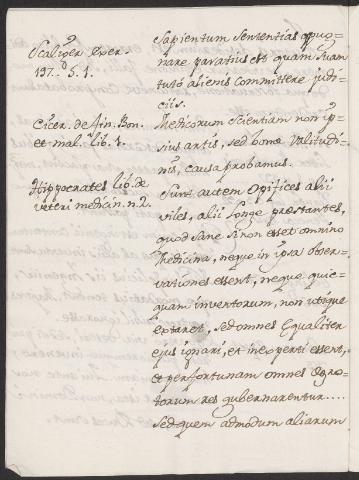 Scaliger Exer.
137. d. 5. 1.
Cicer. de Fin. Bon.
et mal. lib. 1.
Hippocrates lib. de
veteri medicin. n. 2.
Sapientum Sententias oppo-
nare paratius est quam suam
tutò alienis committere judi-
ciis.
Medicorum Scientiam non ip-
sius artis, sed bonæ valitudi-
nis, causa probamus.
Sunt autem Opifices alii
viles, alii longe præstantes,
quod sane si non esset omnino
Medicina, neque in ipsa obser-
vationes essent, neque quic-
quam inventorum, non utique
extaret, sed omnes Equaliter
ejus ignari, et inexperti essent,
et per fortunam omnes Ægro-
torum res gubernarentur....
Sed quem admodum aliarum